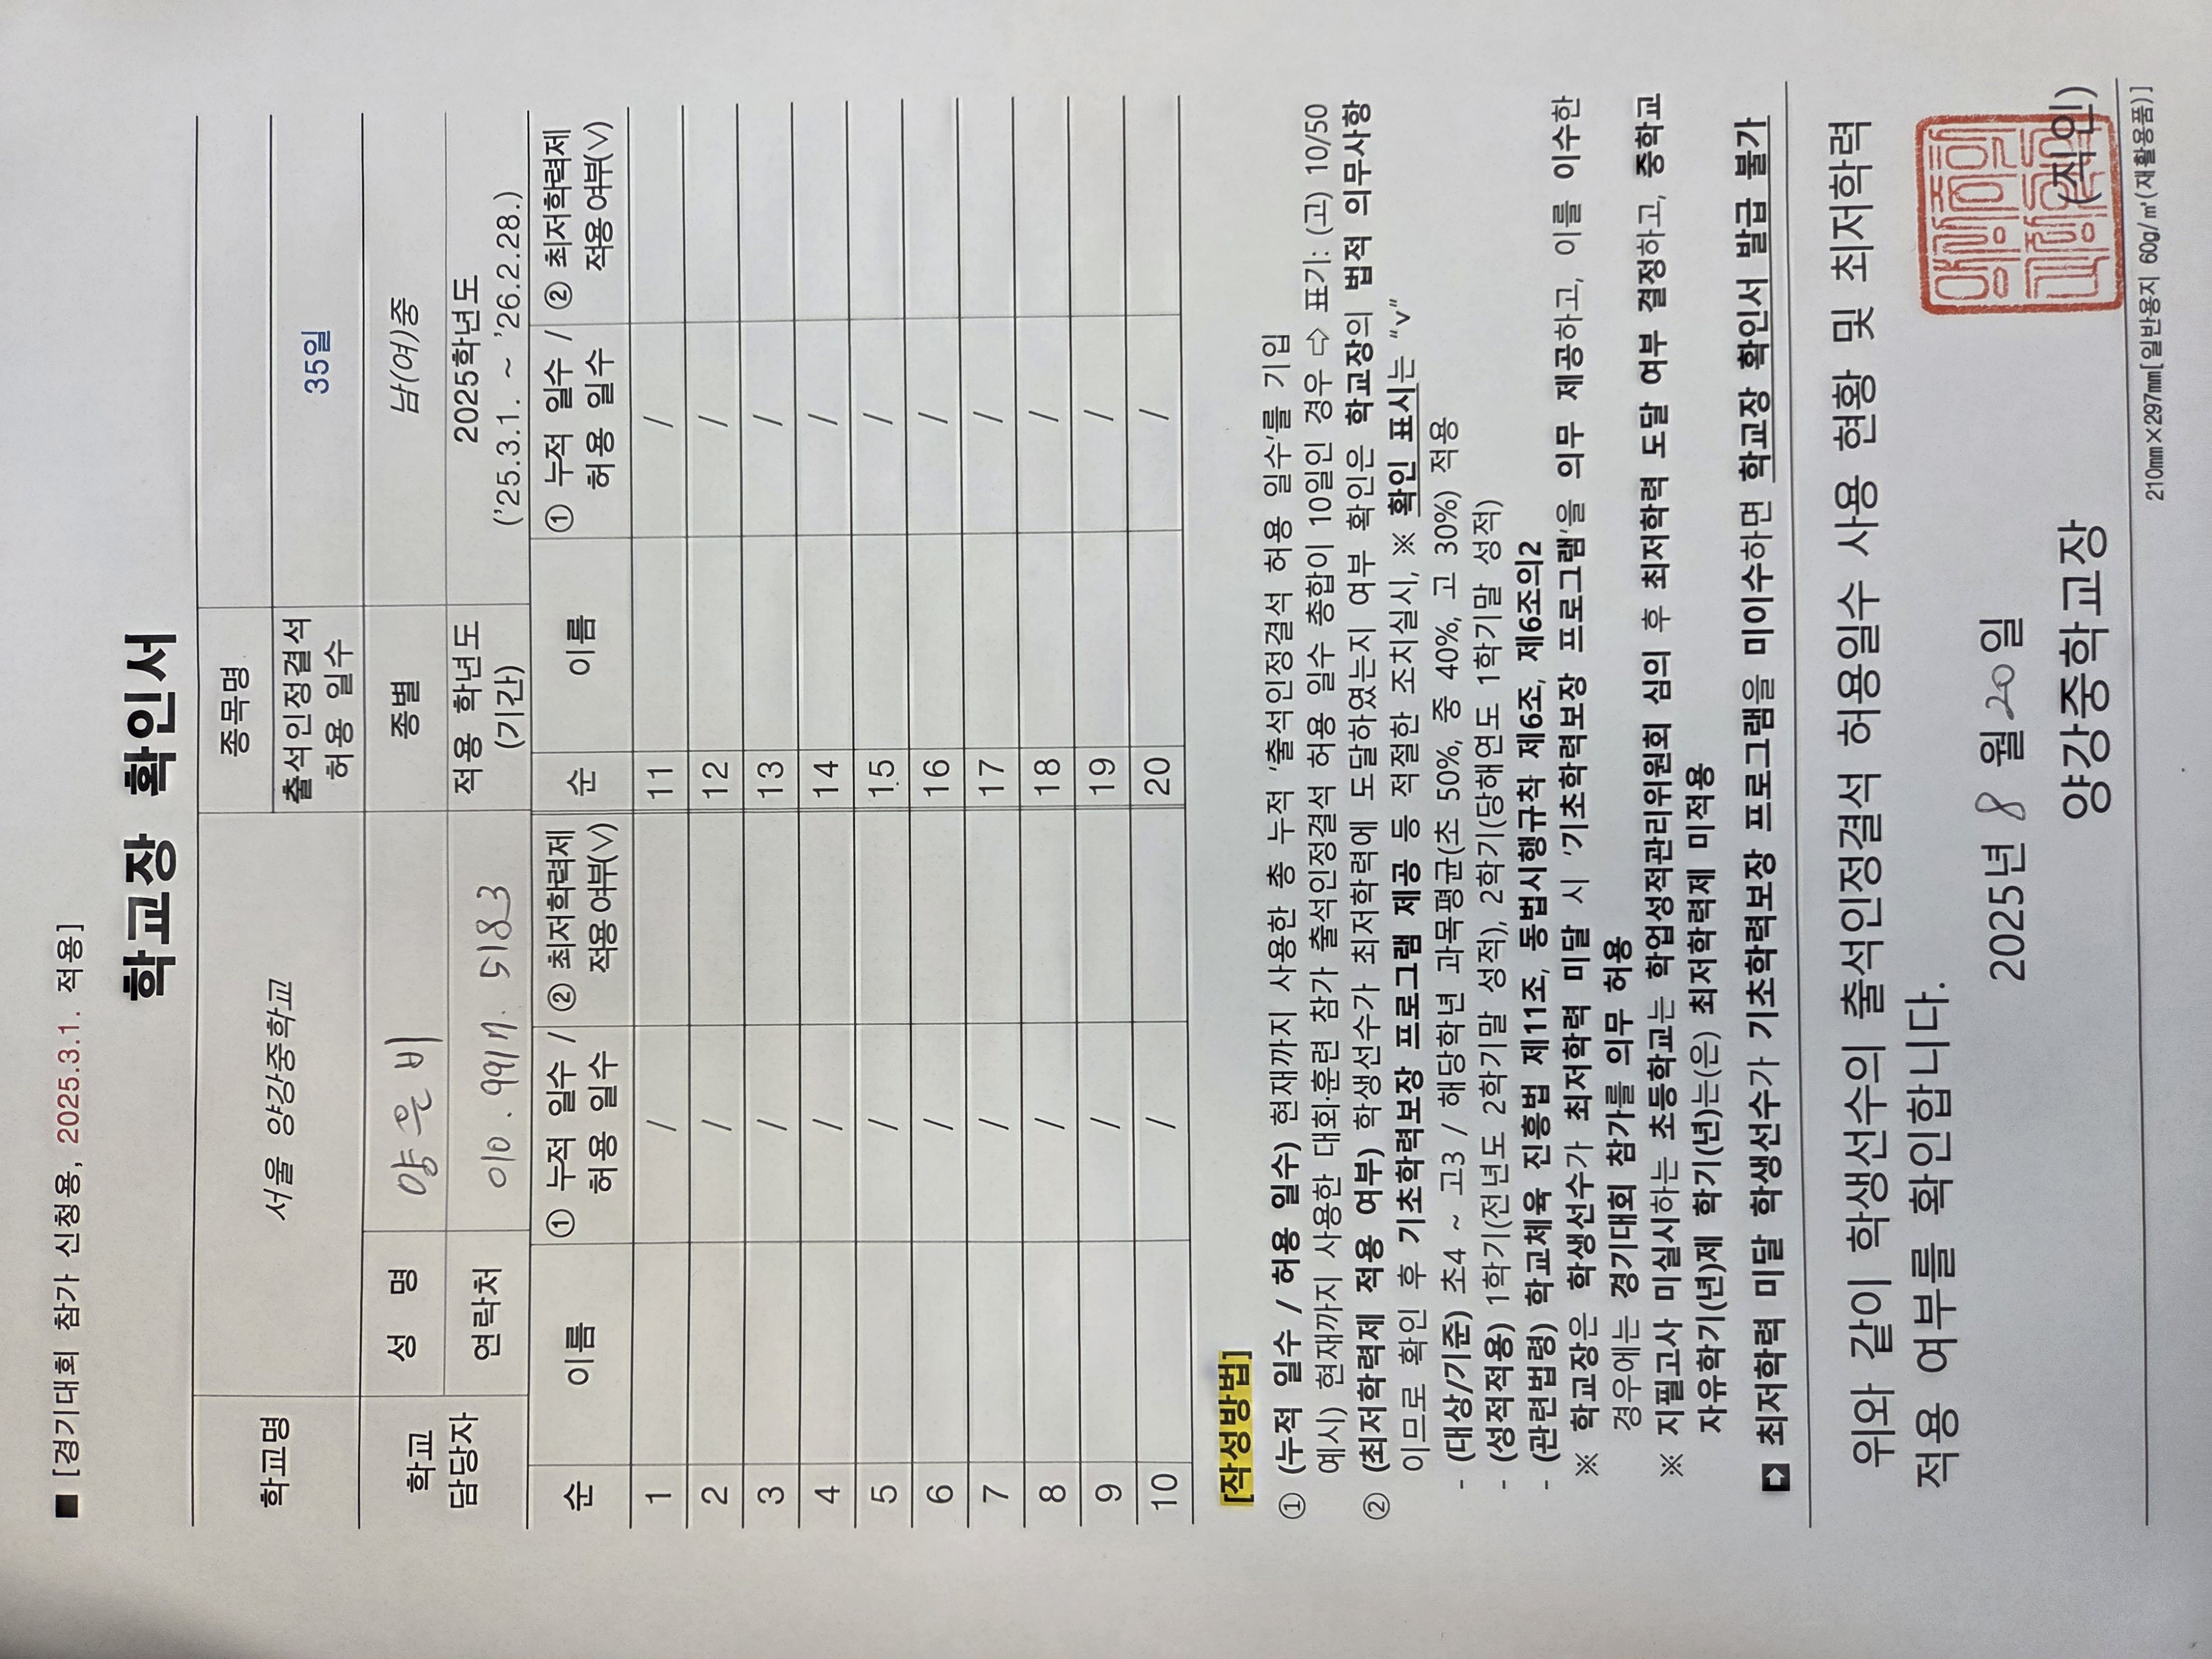 ■ [경기대회 참가 신청용, 2025.3.1. 적용]
학교장 확인서
학교명 서울 양강중학교 종목명
출석인정결석
허용 일수 35일
학교
담당자 성 명 양은비 종별 남(여)중
연락처 010. 9917. 5183 적용 학년도
(기간) 2025학년도
('25.3.1. ~ '26.2.28.)
순 이름 ① 누적 일수 /
허용 일수 ② 최저학력제
적용여부(∨) 순 이름 ① 누적 일수 /
허용 일수 ② 최저학력제
적용여부(∨)
1 / 11 /
2 / 12 /
3 / 13 /
4 / 14 /
5 / 15 /
6 / 16 /
7 / 17 /
8 / 18 /
9 / 19 /
10 / 20 /
[작성방법]
① (누적 일수 / 허용 일수) 현재까지 사용한 총 누적 '출석인정결석 허용 일수'를 기입
예시) 현재까지 사용한 대회·훈련 참가 출석인정결석 허용 일수 총합이 10일인 경우 ⇨ 표기: (고) 10/50
② (최저학력제 적용 여부) 학생선수가 최저학력에 도달하였는지 여부 확인은 학교장의 법적 의무사항
이므로 확인 후 기초학력보장 프로그램 제공 등 적절한 조치실시, ※ 확인 표시는 "v"
- (대상/기준) 초4 ~ 고3 / 해당학년 과목평균(초 50%, 중 40%, 고 30%) 적용
- (성적적용) 1학기(전년도 2학기말 성적), 2학기(당해연도 1학기말 성적)
- (관련법령) 학교체육 진흥법 제11조, 동법시행규칙 제6조, 제6조의2
※ 학교장은 학생선수가 최저학력 미달 시 '기초학력보장 프로그램'을 의무 제공하고, 이를 이수한
경우에는 경기대회 참가를 의무 허용
※ 지필고사 미실시하는 초등학교는 학업성적관리위원회 심의 후 최저학력 도달 여부 결정하고, 중학교
자유학기(년)제 학기(년)는(은) 최저학력제 미적용
➡ 최저학력 미달 학생선수가 기초학력보장 프로그램을 미이수하면 학교장 확인서 발급 불가
위와 같이 학생선수의 출석인정결석 허용일수 사용 현황 및 최저학력
적용 여부를 확인합니다.
2025년 8월 20일
양강중학교장 (직인)
210㎜×297㎜[일반용지 60g/㎡(재활용품)]